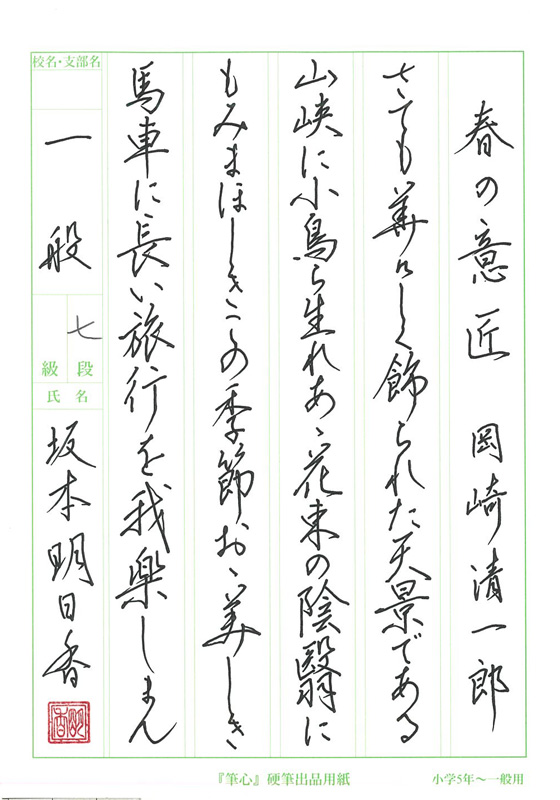 春の意匠 岡崎清一郎
さても美しく飾られた天景である
山峡に小鳥ら生れあゝ花束の陰翳に
もみまほしきこの季節おゝ美しき
馬車に長い旅行を我楽しまん
校名・支部名
一般
七
級 段
氏名
坂本明日香
『筆心』硬筆出品用紙
小学5年〜一般用